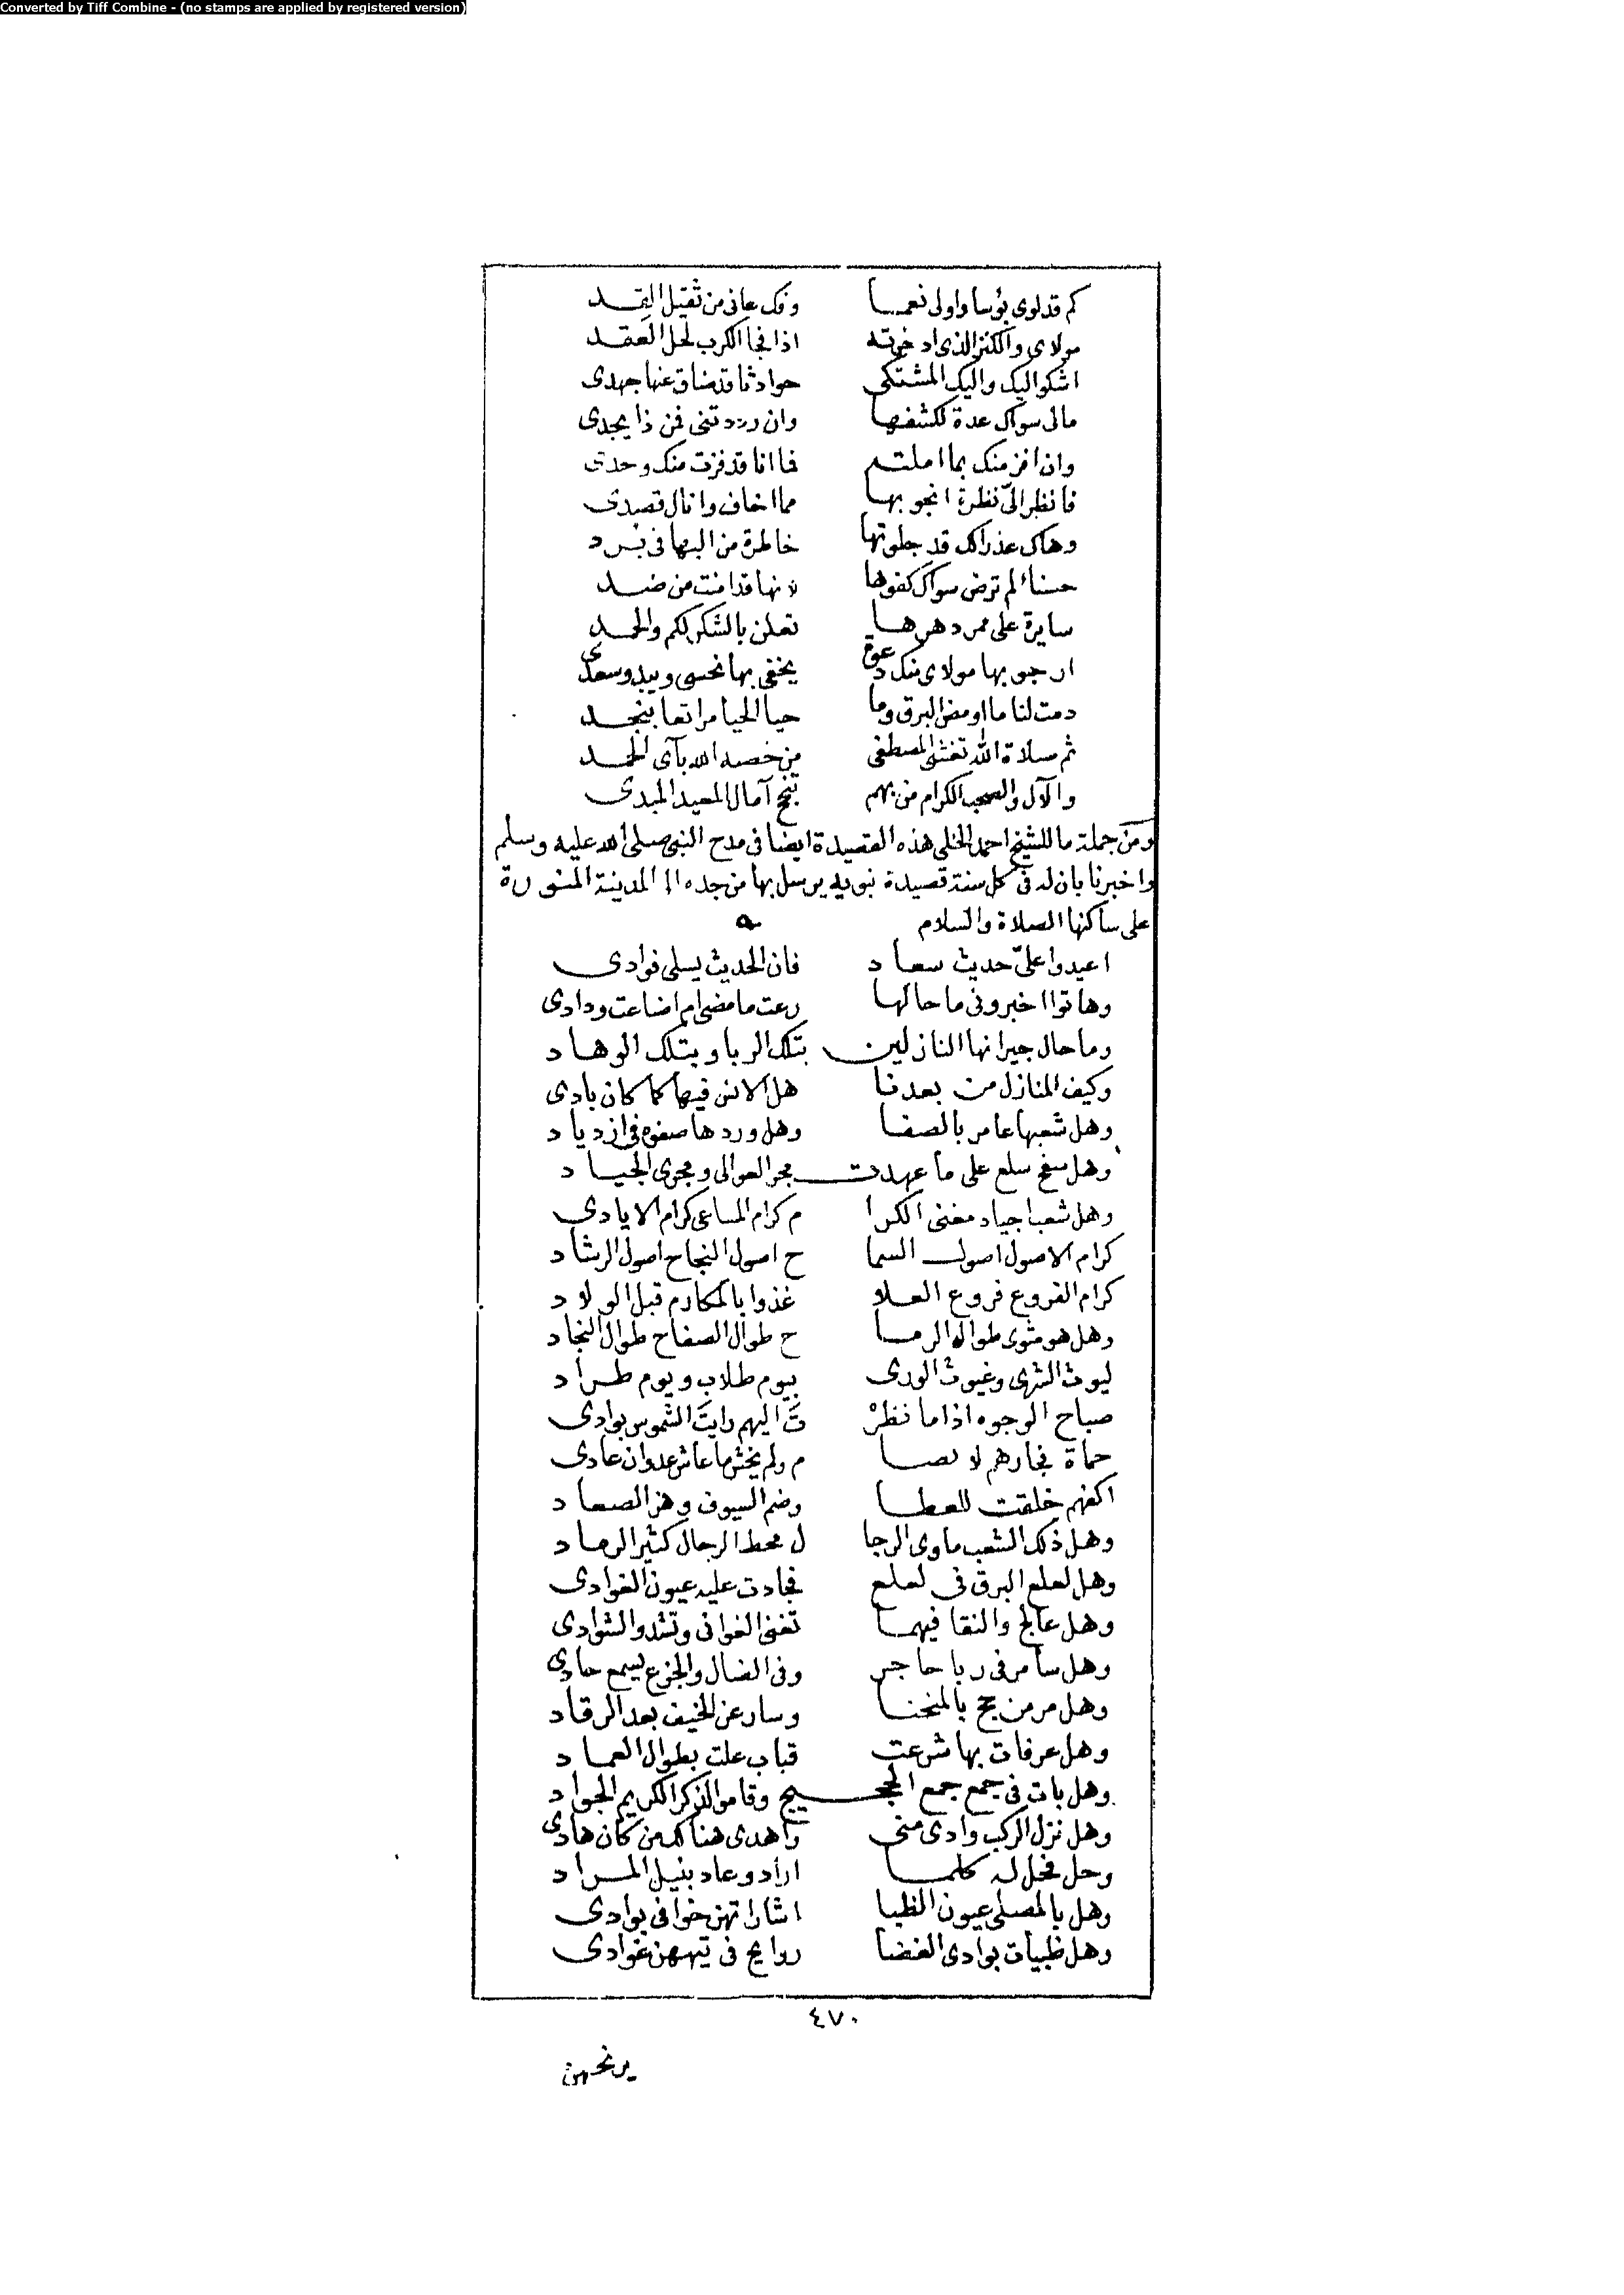 Converted by Tiff Combine - (no stamps are applied by registered version)
كم قد لوى بؤسا واولى نعمــا وفك عانى من ثقيل القِــد
مولاى والكنز الذى ادخرته اذا فجا الكرب لحل العقــد
اشكو اليك واليك المشتكى حوادثا قد ضاق عنها جهدى
مالى سواك عدة لكشفها وان رددتنى فمن ذا يجدى
وان افز منك بما املته فما انا قد فزت منك وحدى
فانظر الىّ نظرة انجو بها مما اخاف وانال قصدى
وهاك عذراك قد جلوتها خاطرة من البها فى برد
حسناء لم ترض سواك كفوها لانها قد امنت من ضد
سايرة على ممر دهرها تعلن بالشكر لكم والحمد
ارجو بها مولاى منك دعوة يخفى بها نحسى ويبدو سعدى
دمت لنا ما اومض البرق وما حيا الحيا مراتعا بنجــد
ثم سلاة الله تغشى المصطفى من خصه الله بآى الحمــد
والآل والصحب الكرام من بهم تنجح آمال المعيد المبدى
ومن جملة ما للشيخ احمد الخلى هذه القصيدة ايضا فى مدح النبى صلى الله عليه وسلم
واخبرنا بان له فى كل سنة قصيدة نبويه يرسل بها من جده الى المدينة المنورة
على ساكنها الصلاة والسلام
اعيدوا علىّ حديث سعاد فان الحديث يسلى فوادى
وهاتوا اخبرونى ما حالها رعت ما مضى ام اضاعت ودادى
وما حال جيرانها النازلين بتلك الربا وبتلك الوهاد
وكيف المنازل من بعدنا هل الانس فيها كما كان بادى
وهل شعبها عامر بالصفا وهل وردها صفوه فى ازدياد
وهل سفح سلع على ما عهدت مجر العوالى ومجرى الجياد
وهل شعب اجياد مغنى الكرا م كرام المساعى كرام الايادى
كرام الاصول اصول السما ح اصول النجاح اصول الرشاد
كرام الفروع فروع العلا غذوا بالمكارم قبل الولاد
وهل هو مثوى طوال الرمــا ح طوال الصفاح طوال النجاد
ليوث الشرى وغيوث الورى بيوم طلاب ويوم طراد
صباح الوجوه اذا ما نظرْ تَ اليهم رايتَ الشموس بوادى
حماة فجارهم لا يضــا م ولم يخش ما عاش عدوان عادى
اكفهم خلقت للعطــا وضم السيوف وهز الصعاد
وهل ذلك الشعب ماوى الرجا ل محط الرحال كثير الرماد
وهل لعلع البرق فى لعلع فجادت عليه عيون الغوادى
وهل عالج والنقا فيهما تغنى الغوانى وتشدو الشوادى
وهل سامر فى ربا حاجر وفى الضال والجزع يسمع حادى
وهل مر من حج بالمنحنا وسار عن الخيف بعد الرقاد
وهل عرفات بها شرعت قباب علت بطوال العماد
وهل بات فى جمع جمع الحجــيج وقاموا لذكر الكريم الجواد
وهل نزل الركب وادى منى واهدى هنالك من كان هادى
وحل فحل له كلمــا اراد وعاد بنيل المراد
وهل بالمصلى عيون الظبا اشاراتهن خوافى بوادى
وهل ظبيات بوادى الغضا روايح فى تيههن غوادى
٤٧٠
يرنحهن